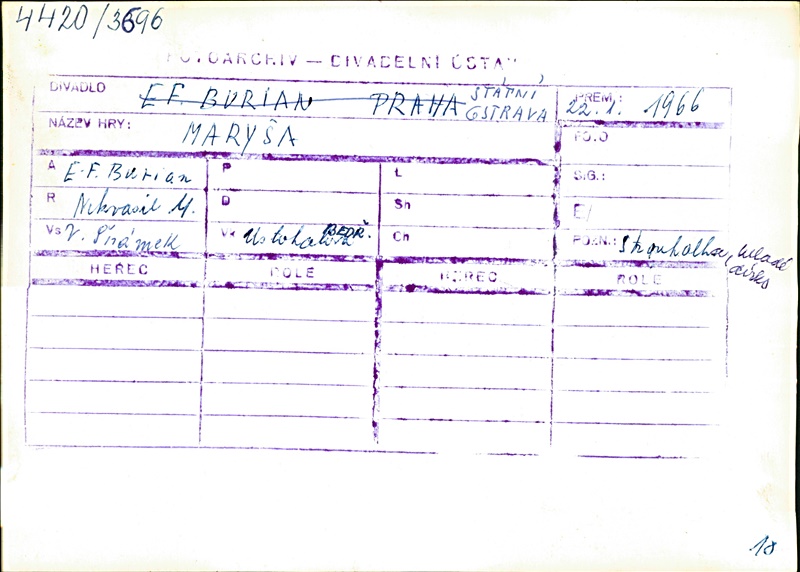 4420/3696
FOTOARCHIV — DIVADELNÍ ÚSTAV
DIVADLO E.F. BURIAN PRAHA STÁTNÍ OSTRAVA PREM.: 22.1. 1966
NÁZEV HRY: MARYŠA FOTO
A E.F. Burian P L SIG.:
R Nekvasil M. D Sh E/
Vs V. Šrámek Vk BEDŘ. Ch POZN.: mladé
HEREC ROLE HEREC ROLE
18